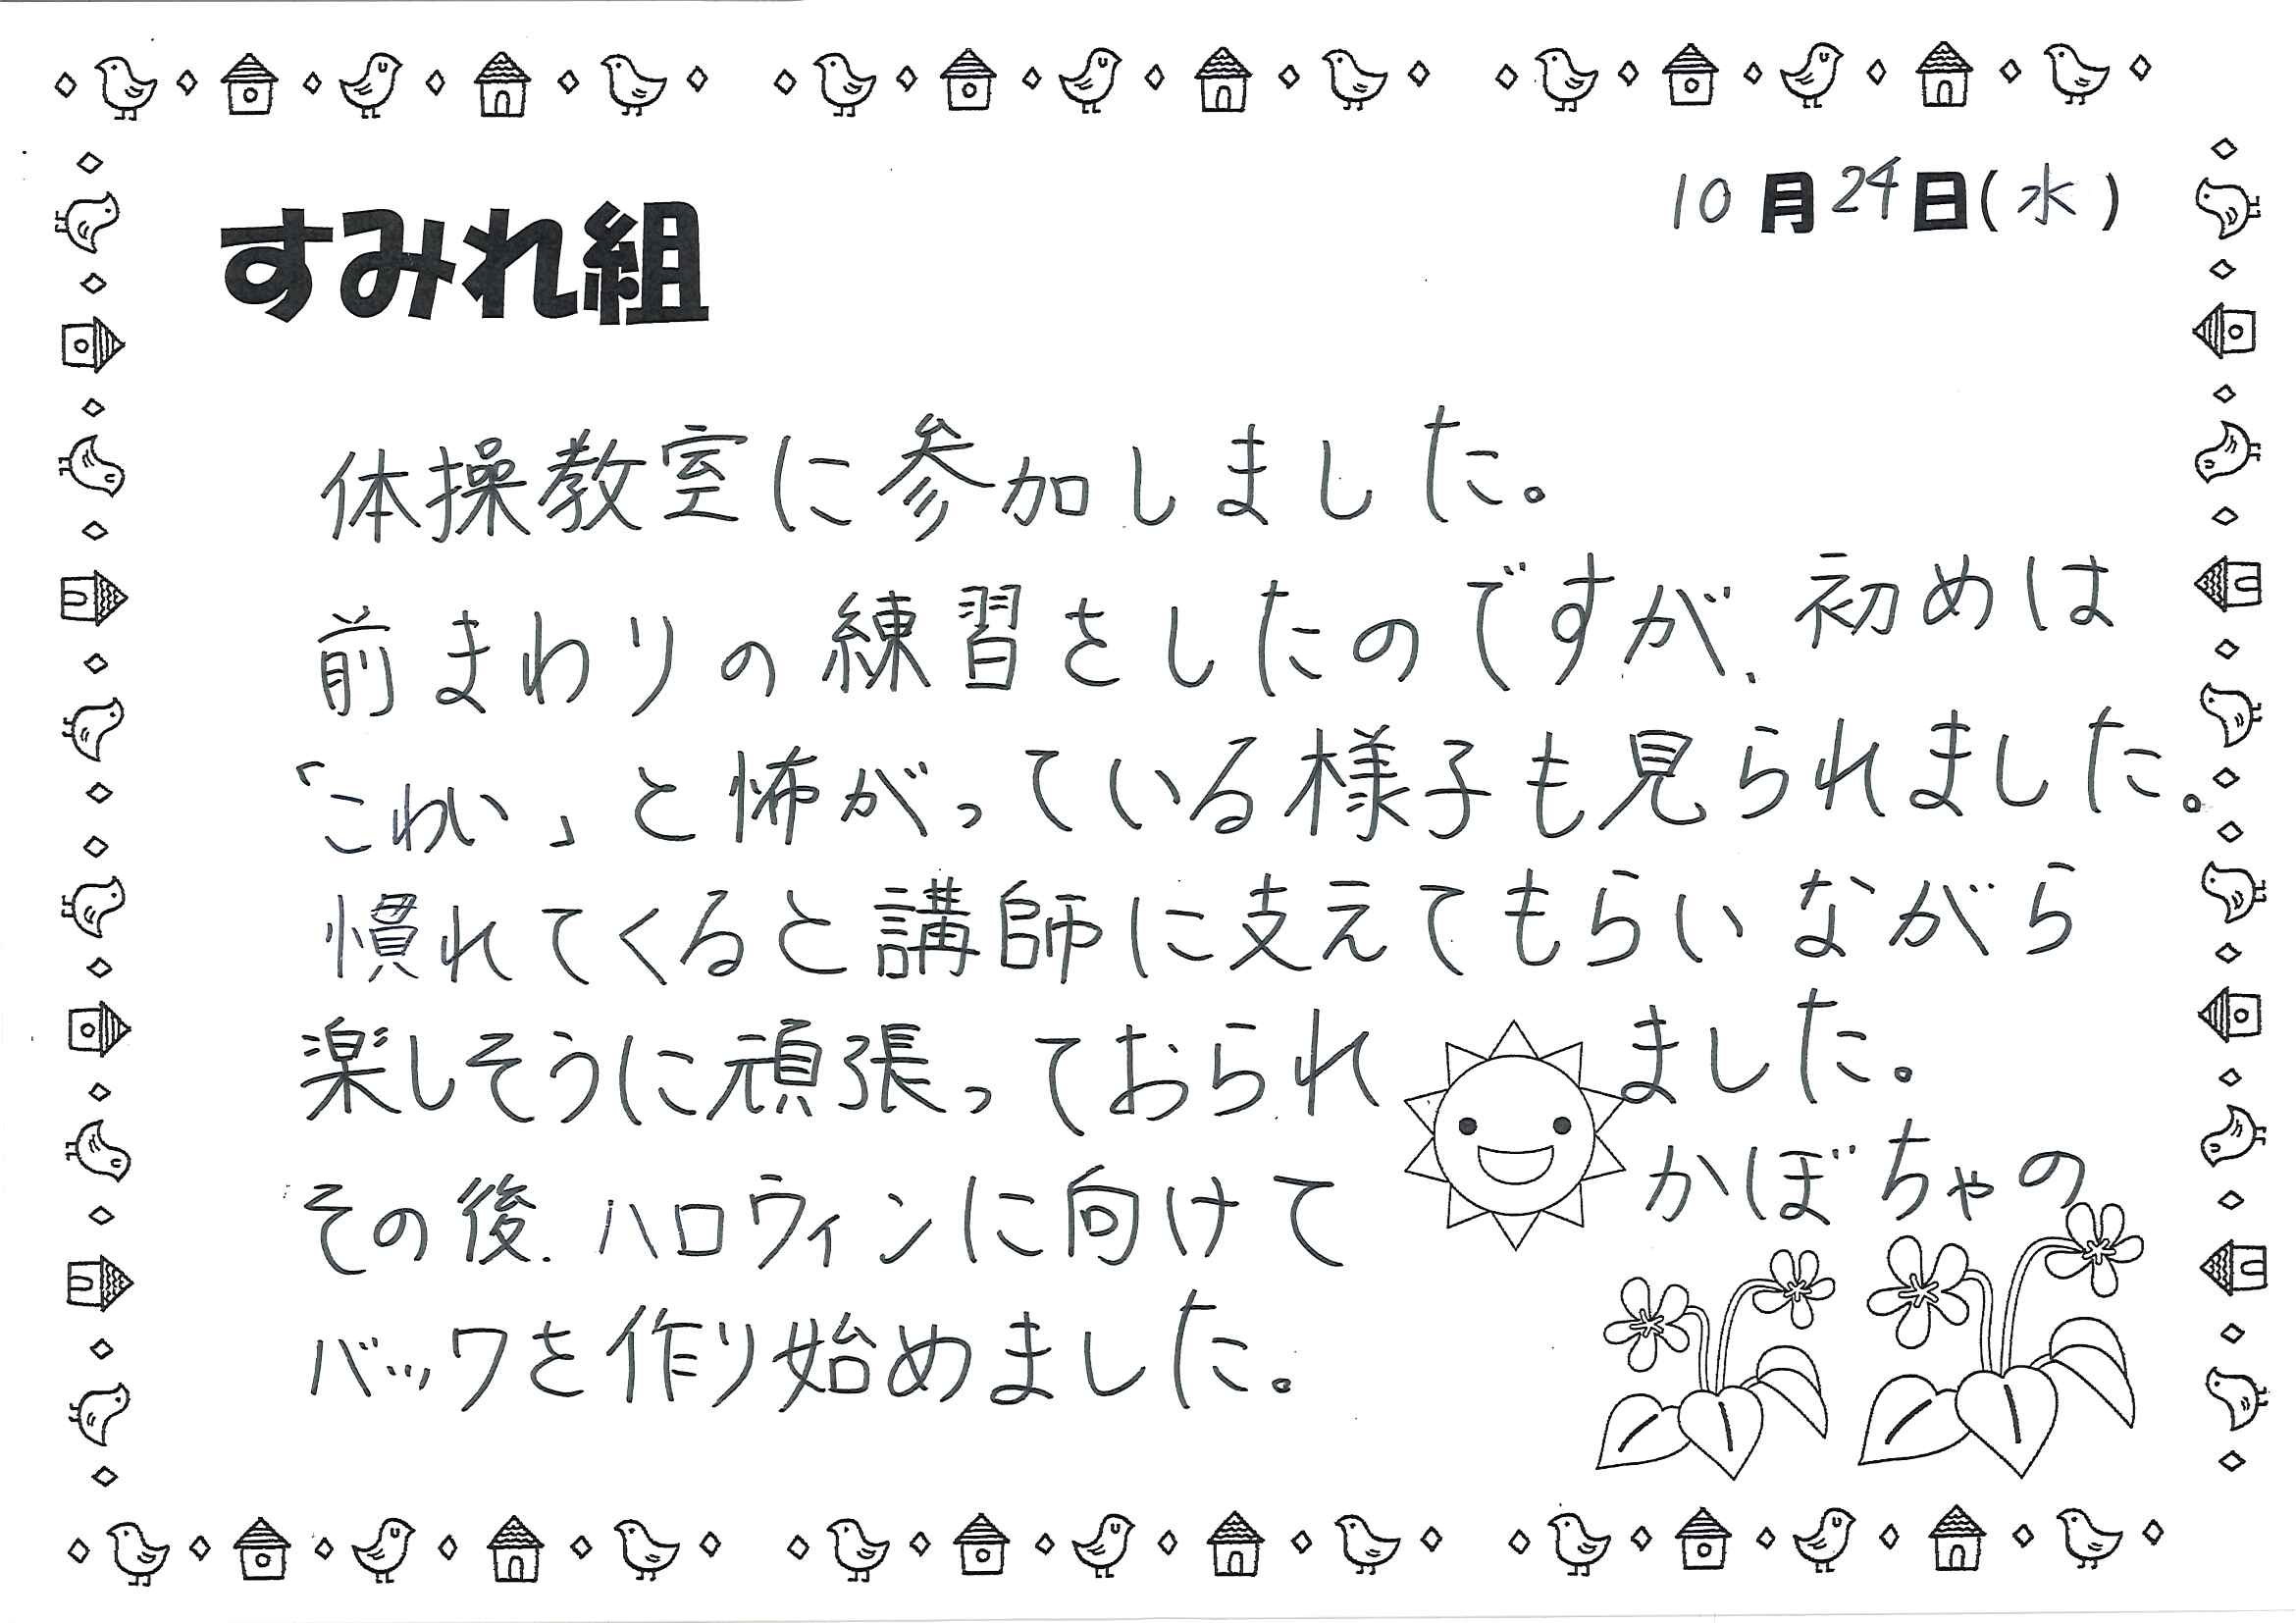 10月24日(水)
すみれ組
体操教室に参加しました。
前まわりの練習をしたのですが、初めは
「こわい」と怖がっている様子も見られました。
慣れてくると講師に支えてもらいながら
楽しそうに頑張っておられました。
その後、ハロウィンに向けてかぼちゃの
バックを作り始めました。